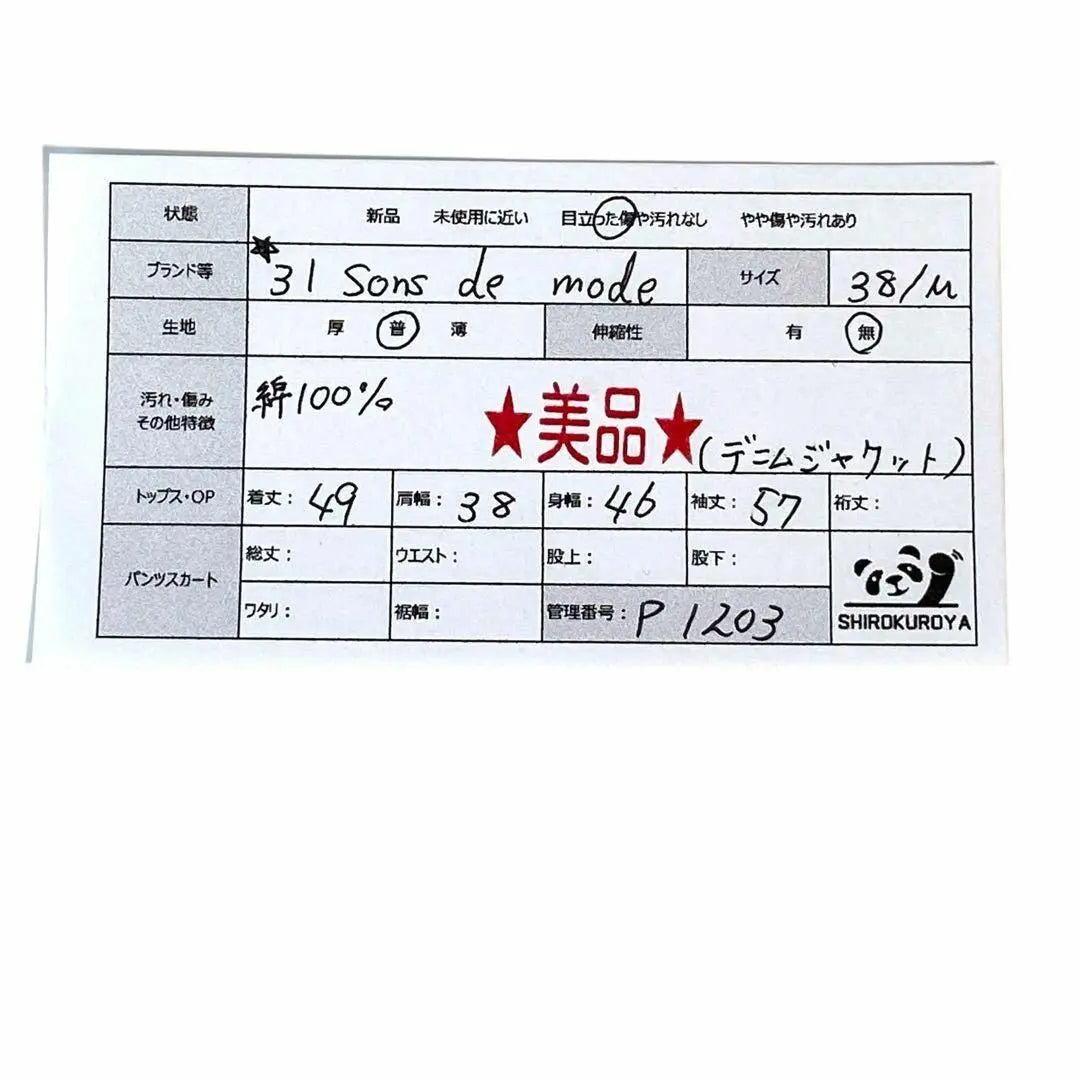 状態 新品 未使用に近い 目立った傷や汚れなし やや傷や汚れあり
ブランド等 ★31 Sons de mode サイズ 38/M
生地 厚 普 薄 伸縮性 有 無
汚れ・傷み
その他特徴
綿100%
★美品★
(デニムジャケット)
トップス・OP 着丈: 49 肩幅: 38 身幅: 46 袖丈: 57 裄丈:
パンツスカート
総丈: ウエスト: 股上: 股下:
ワタリ: 裾幅: 管理番号: P 1203
SHIROKUROYA